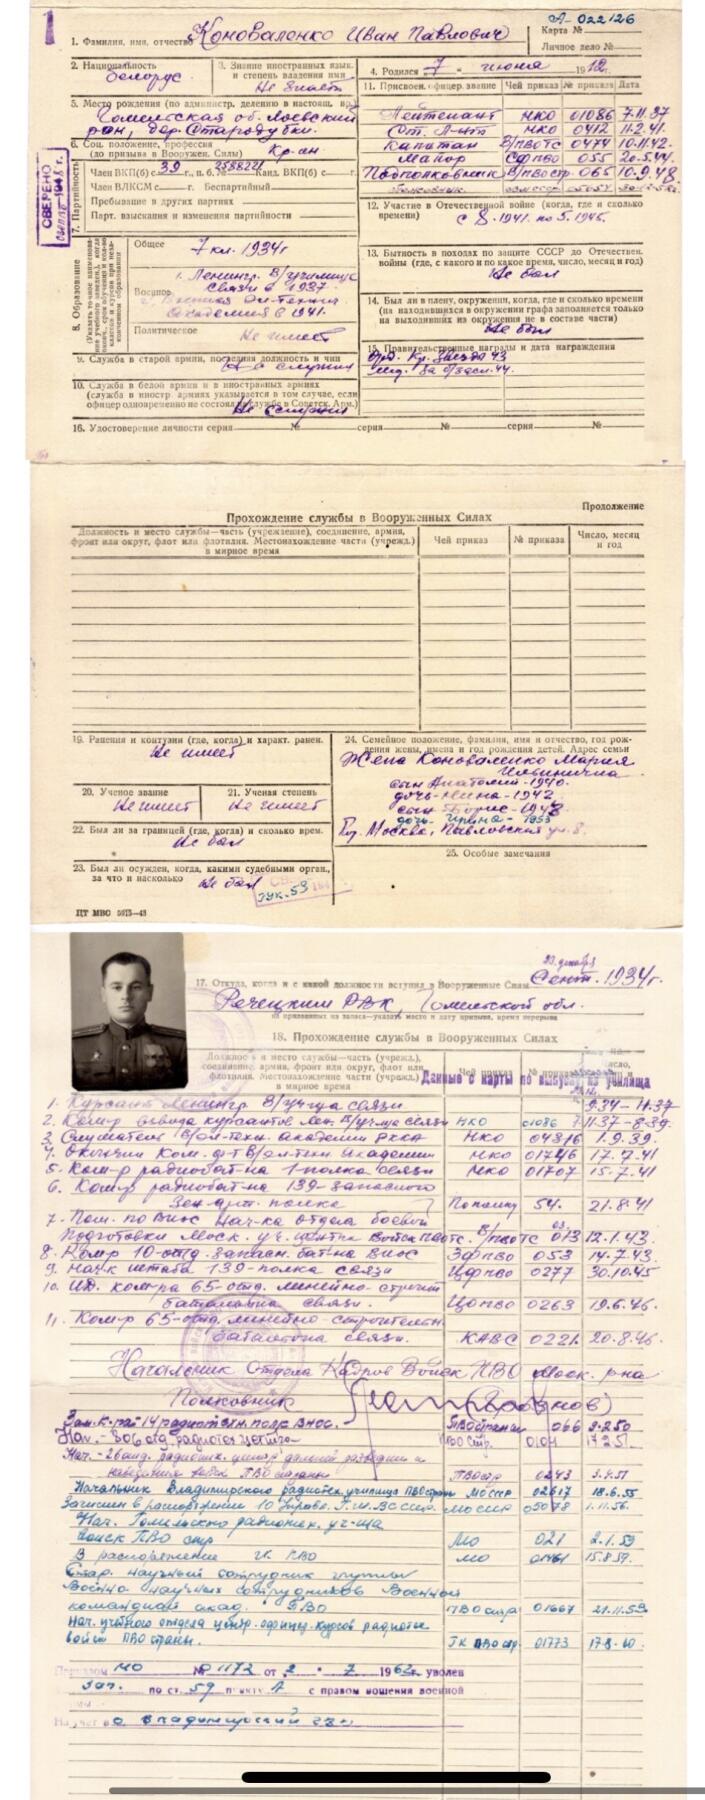 1
А-022126
1. Фамилия, имя, отчество Коноваленко Иван Павлович
Карта №
Личное дело №
2. Национальность белорус
3. Знание иностранных язык. и степень владения ими Не знает
4. Родился 7 " июня 1912 г.
5. Место рождения (по администр. делению в настоящ. вр.)
Гомельская об. Лоевский
р-он, дер. Стародубка.
6. Соц. положение, профессия
(до призыва в Вооружен. Силы) Кр-ин
СВЕРЕНО
7. Партийность
Член ВКП(б) с 39 г., п. б. № 2588221 Канд. ВКП(б) с г.
Член ВЛКСМ с г. Беспартийный
Пребывание в других партиях
Парт. взыскания и изменения партийности
8. Образование
Общее 7 кл. 1934г
Военное
1. Ленингр. В/училище
связи в 1937
Академия в 1941.
Политическое Не имеет
9. Служба в старой армии, последняя должность и чин
Не служил
10. Служба в белой армии и в иностранных армиях
(служба в иностр. армиях указывается в том случае, если
офицер одновременно не состоял на службе в Советск. Арм.)
Не служил
11. Присвоен. офицер. звание Чей приказ № приказа Дата
Лейтенант НКО 01086 7.11.37
Ст. Л-нт НКО 0412 11.2.41.
Капитан В/ПВОТС 0474 10.11.42.
Майор 055 20.5.44.
Подполковник В/ПВОстр. 065 10.9.48
Полковник
12. Участие в Отечественной войне (когда, где и сколько
времени)
с 8.1941. по 5.1945.
13. Бытность в походах по защите СССР до Отечествен.
войны (где, с какого и по какое время, число, месяц и год)
Не был
14. Был ли в плену, окружении, когда, где и сколько времени
(на находившихся в окружении графа заполняется только
на выходивших из окружения не в составе части)
Не был
15. Правительственные награды и дата награждения
Орд. Кр. Звезда 43
мед. За б/засл. 44.
16. Удостоверение личности серия № серия № серия №
Продолжение
Прохождение службы в Вооруженных Силах
Должность и место службы—часть (учреждение), соединение, армия,
фронт или округ, флот или флотилия. Местонахождение части (учрежд.)
в мирное время
Чей приказ
№ приказа
Число, месяц
и год
19. Ранения и контузии (где, когда) и характ. ранен.
Не имеет
20. Ученое звание
Не имеет
21. Ученая степень
Не имеет
22. Был ли за границей (где, когда) и сколько врем.
Не был
23. Был ли осужден, когда, какими судебными орган.,
за что и насколько Не был
24. Семейное положение, фамилия, имя и отчество, год рож-
дения жены, имена и год рождения детей. Адрес семьи
Жена Коноваленко Мария
Ильинична
сын Анатолий-1940.
дочь-Нина-1942
сын Борис-1948
дочь-Ирина-1953
Гор. Москва, Павловская ул. 8.
25. Особые замечания
ЦТ МВС 5973—48
17. Откуда, когда и с какой должности вступил в Вооруженные Силы Сент. 1934г.
Речецким РВК, Гомельской обл.
18. Прохождение службы в Вооруженных Силах
Должность и место службы—часть (учрежд.),
соединение, армия, фронт или округ, флот или
флотилия. Местонахождение части (учрежд.)
в мирное время
Чей приказ
№ приказа
Данные с карты по выпуску из училища
1. Курсант Ленингр. В/уч-ща связи 9.34-11.37
2. Ком-р взвода курсантов Лен. В/уч-ща связи НКО 01086 7.11.37-8.39.
3. Слушатель В/эл-техн. академии РККА НКО 04316 1.9.39.
4. Окончил Ком. ф-т В/эл-техн. Академии НКО 01746 17.7.41
5. Ком-р радиобат-на 1-полка связи НКО 01707 15.7.41
6. Ком-р радиобат-на 139-запасного
Зен.арт. полка По полку 54. 21.8.41
7. Пом. по ВНОС Нач-ка отдела боевой
подготовки Моск. уч. центра Войск ПВОТС. В/ПВОТС 013 12.1.43.
8. Ком-р 10-отд. запасн. бат-на ВНОС ЗФПВО 053 14.7.43.
9. Нач-к штаба 139-полка связи ЦФПВО 0277 30.10.45
10. ИД. ком-ра 65-отд. линейно-строит
батальона связи. ЦОПВО 0263 19.6.46.
11. Ком-р 65-отд. линейно-строительн.
батальона связи. КАВС 0221. 20.8.46.
Начальник Отдела Кадров Войск ПВО Моск. р-на
Полковник
Зам. К-ра 14 радиотехн. полка ВНОС. 066
Нач. 0104
Нач.-26 отд. радиотехн. центра дальней разведки и
наведения войск ПВО страны ПВОстр 0243
Начальник Владимирского радиотех. училища ПВОстраны МО СССР 02617 18.6.55
Зачислен в распоряжение 10 Управл. Г.Ш. ВС СССР. МО СССР 05078 1.11.56.
Нач. Гомельского радиотех. уч-ща
Войск ПВО стр МО 021 2.1.59
В распоряжение ГК ПВО МО 01461 15.8.59.
Стар. научный сотрудник группы
Военно научных сотрудников Военной
командной акад. ПВО ПВО стр 01667 21.11.59
Нач. учебного отдела центр. офицер. курсов радиотех
войск ПВО страны. ГК ПВО стр 01773 17.8.60.
Приказом МО № 01172 от 2 " 7 1962г. уволен
зап. по ст. 59 пункт А с правом ношения военной
На учет в Владимирский